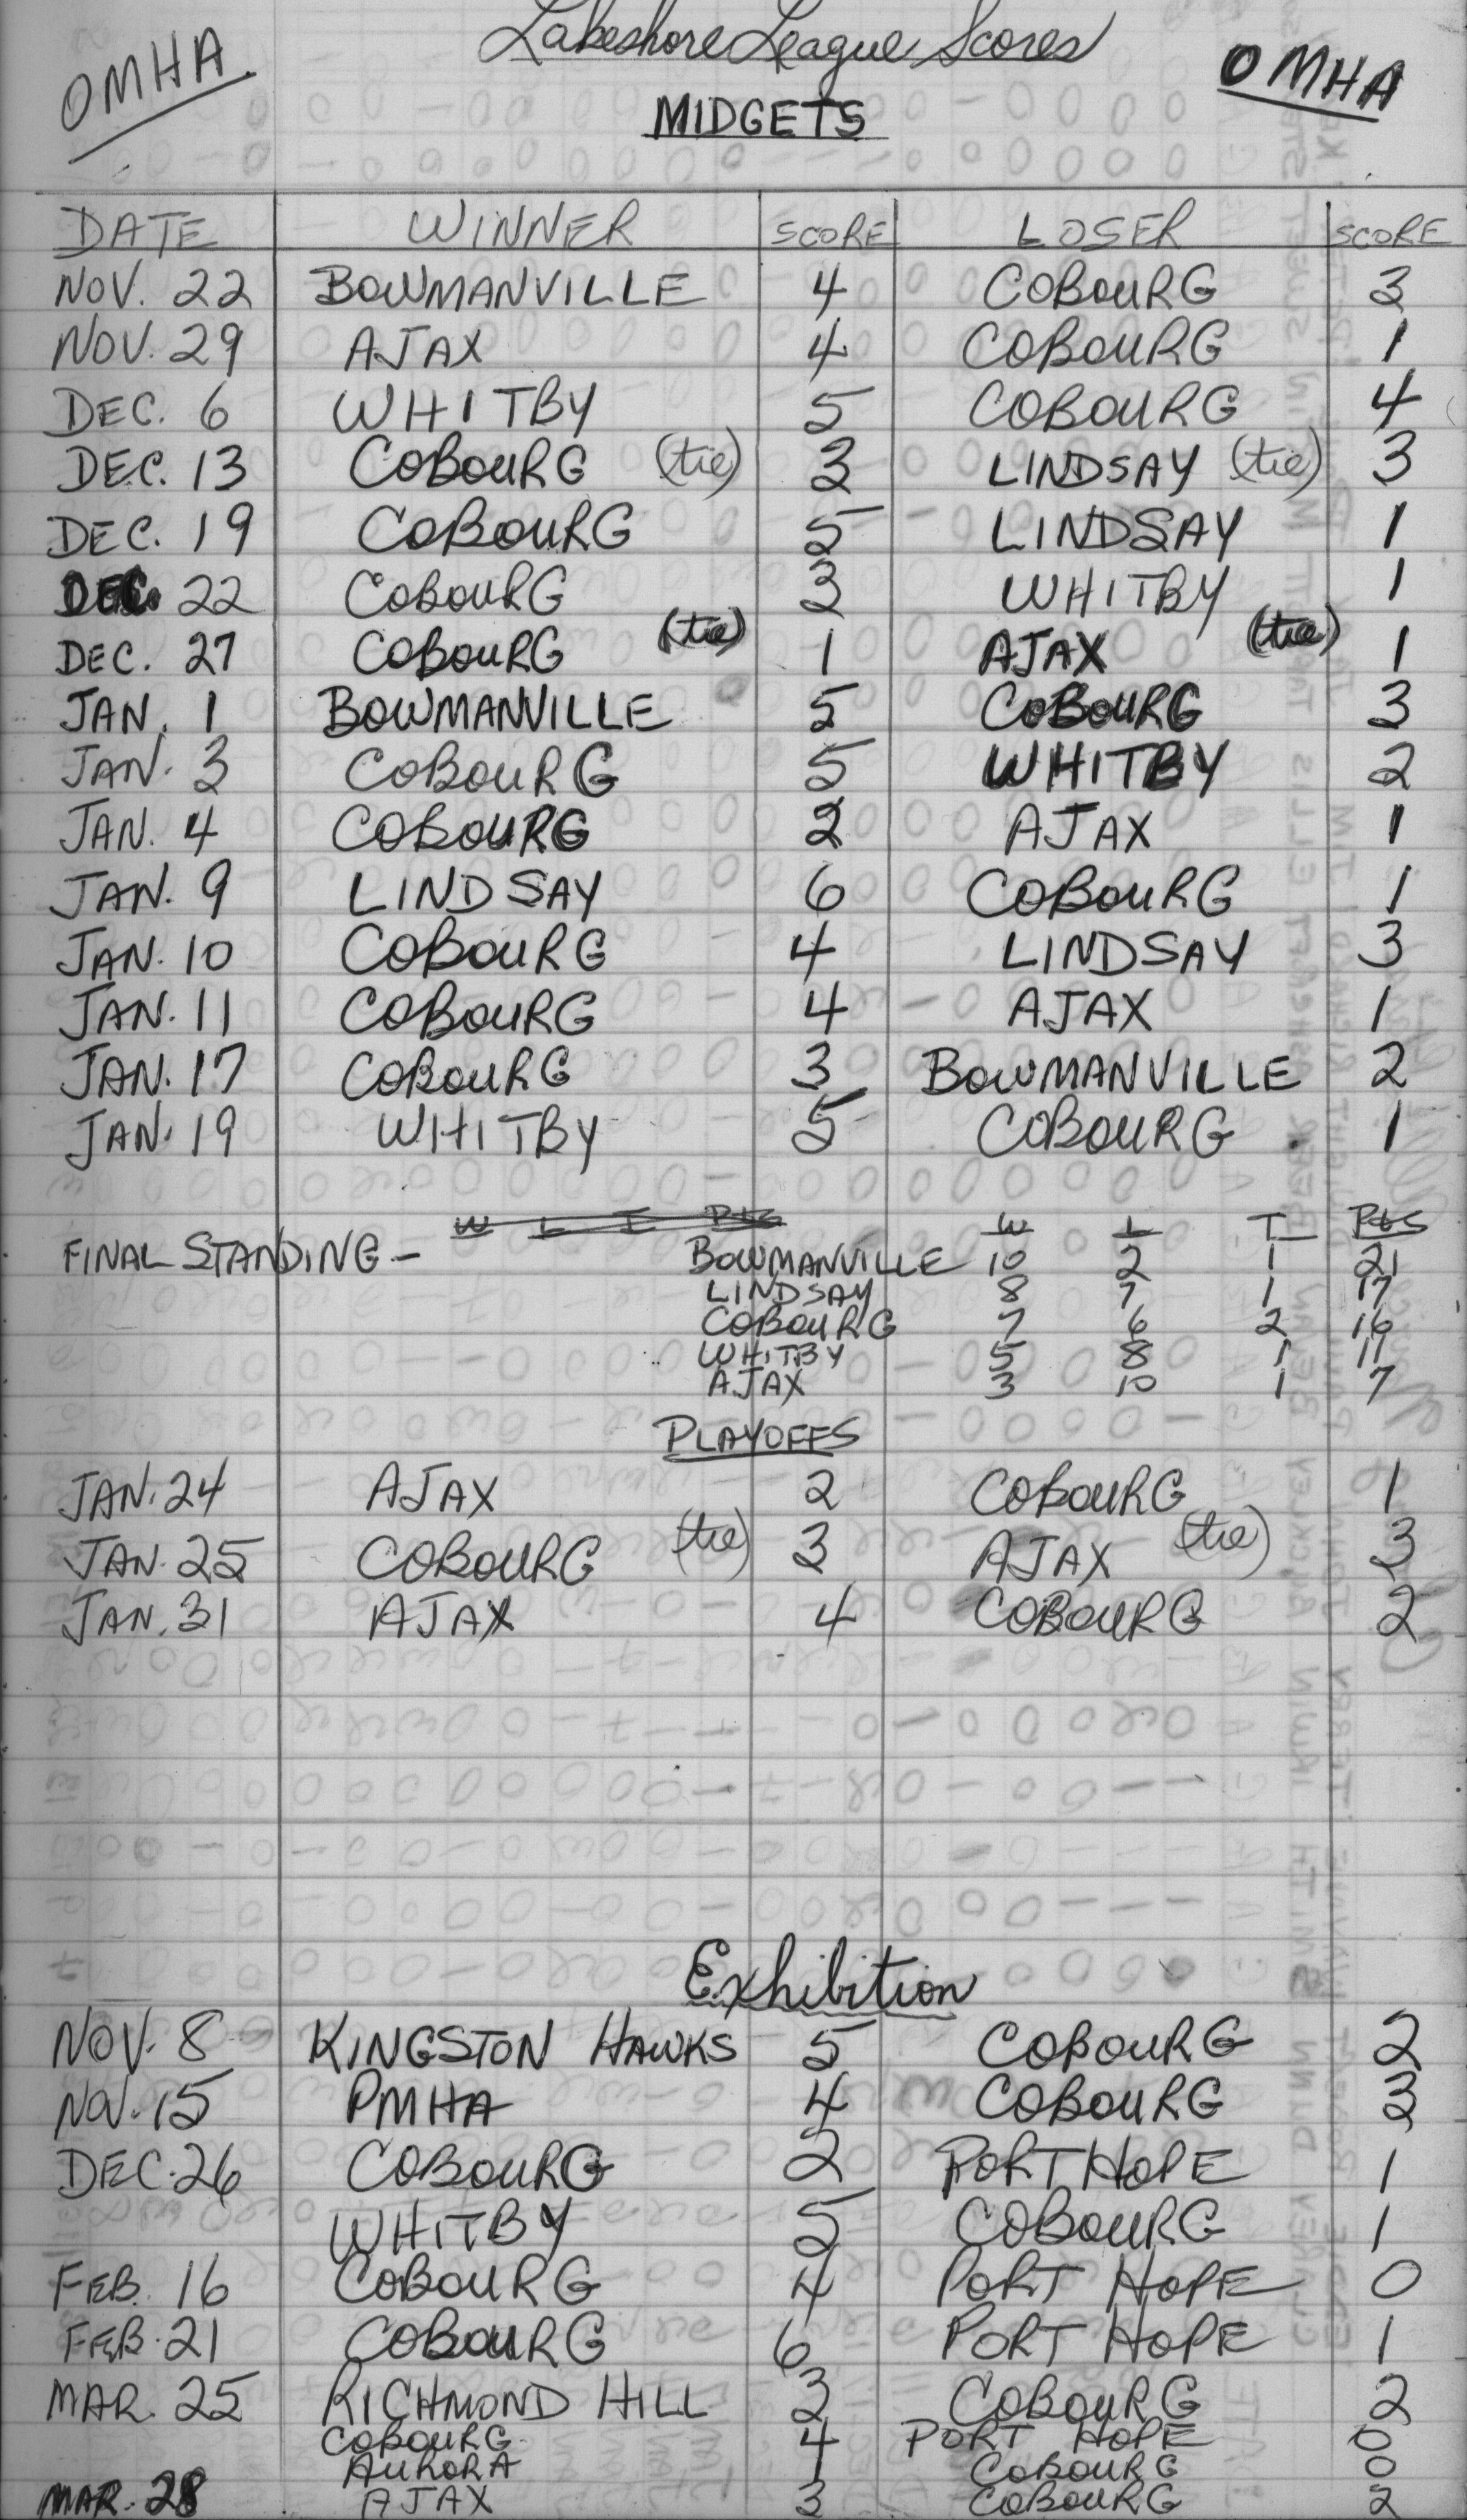 Lakeshore League Scores
OMHA OMHA
MIDGETS
DATE WINNER SCORE LOSER SCORE
NOV. 22 BOWMANVILLE 4 COBOURG 3
NOV. 29 AJAX 4 COBOURG 1
DEC. 6 WHITBY 5 COBOURG 4
DEC. 13 COBOURG (tie) 3 LINDSAY (tie) 3
DEC. 19 COBOURG 5 LINDSAY 1
DEC. 22 COBOURG 3 WHITBY 1
DEC. 27 COBOURG (tie) 1 AJAX (tie) 1
JAN. 1 BOWMANVILLE 5 COBOURG 3
JAN. 3 COBOURG 5 WHITBY 2
JAN. 4 COBOURG 2 AJAX 1
JAN. 9 LINDSAY 6 COBOURG 1
JAN. 10 COBOURG 4 LINDSAY 3
JAN. 11 COBOURG 4 AJAX 1
JAN. 17 COBOURG 3 BOWMANVILLE 2
JAN. 19 WHITBY 5 COBOURG 1
W L T Pts W L T Pts
FINAL STANDING - BOWMANVILLE 10 2 1 21
LINDSAY 8 7 1 17
COBOURG 7 6 2 16
WHITBY 5 8 1 11
AJAX 3 10 1 7
PLAYOFFS
JAN. 24 AJAX 2 COBOURG 1
JAN. 25 COBOURG (tie) 3 AJAX (tie) 3
JAN. 31 AJAX 4 COBOURG 2
Exhibition
NOV. 8 KINGSTON HAWKS 5 COBOURG 2
NOV. 15 PMHA 4 COBOURG 3
DEC. 26 COBOURG 2 PORT HOPE 1
WHITBY 5 COBOURG 1
FEB. 16 COBOURG 4 PORT HOPE 0
FEB. 21 COBOURG 6 PORT HOPE 1
MAR. 25 RICHMOND HILL 3 COBOURG 2
COBOURG 4 PORT HOPE 0
AURORA 1 COBOURG 0
MAR. 28 AJAX 3 COBOURG 2